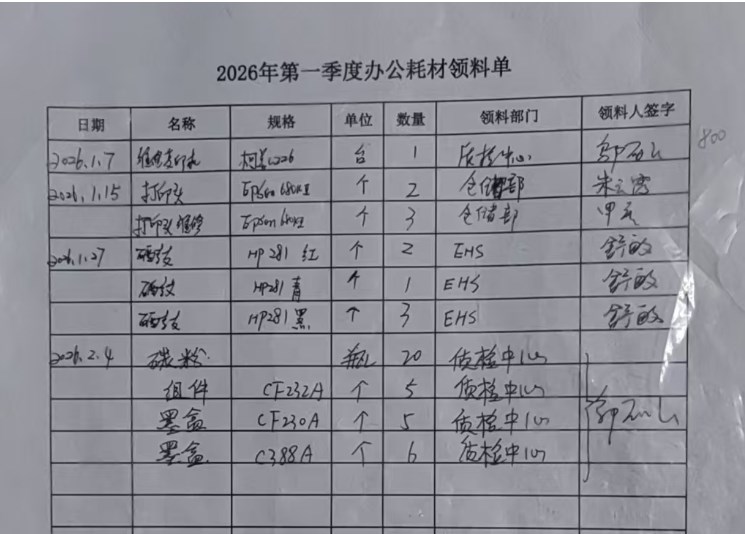 2026年第一季度办公耗材领料单
日期 名称 规格 单位 数量 领料部门 领料人签字
2026.1.7 维修打印机 柯美226 台 1 质检中心 800
2026.1.15 打印头 Epson 680KII 个 2 仓储部
打印头维修 Epson 680KII 个 3 仓储部
2026.1.27 硒鼓 HP281 红 个 2 EHS 舒敏
硒鼓 HP281 青 个 1 EHS 舒敏
硒鼓 HP281 黑 个 3 EHS 舒敏
2026.2.4 碳粉 瓶 20 质检中心
组件 CF232A 个 5 质检中心
墨盒 CF230A 个 5 质检中心
墨盒 C388A 个 6 质检中心